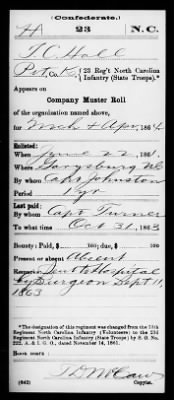 (Confederate.)
H 23 N.C.
T. C. Hall
Pvt, Co. K, 23 Reg't North Carolina
Infantry (State Troops).*
Appears on
Company Muster Roll
of the organization named above,
for Mch & Apr, 1864.
Enlisted:
When June 22, 1861.
Where Garysburg NC
By whom Capt Johnston
Period 1 yr
Last paid:
By whom Capt Turner
To what time Oct 31, 1863
Bounty: Paid $ 100; due $ 100
Present or absent Absent
Remarks: Sent to Hospital
by Surgeon Sept 11,
1863
*The designation of this regiment was changed from the 13th
Regiment North Carolina Infantry (Volunteers) to the 23d
Regiment North Carolina Infantry (State Troops) by S. O. No.
222, A. & I. G. O., dated November 14, 1861.
Book mark:
(642) Copyist.